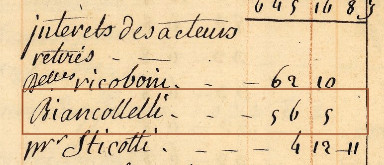 645 16 8
interets des acteurs
retirés
Delles ricoboni. 62 10
Biancollelli. 5 6 5
mrs Sticotti. 4 12 11